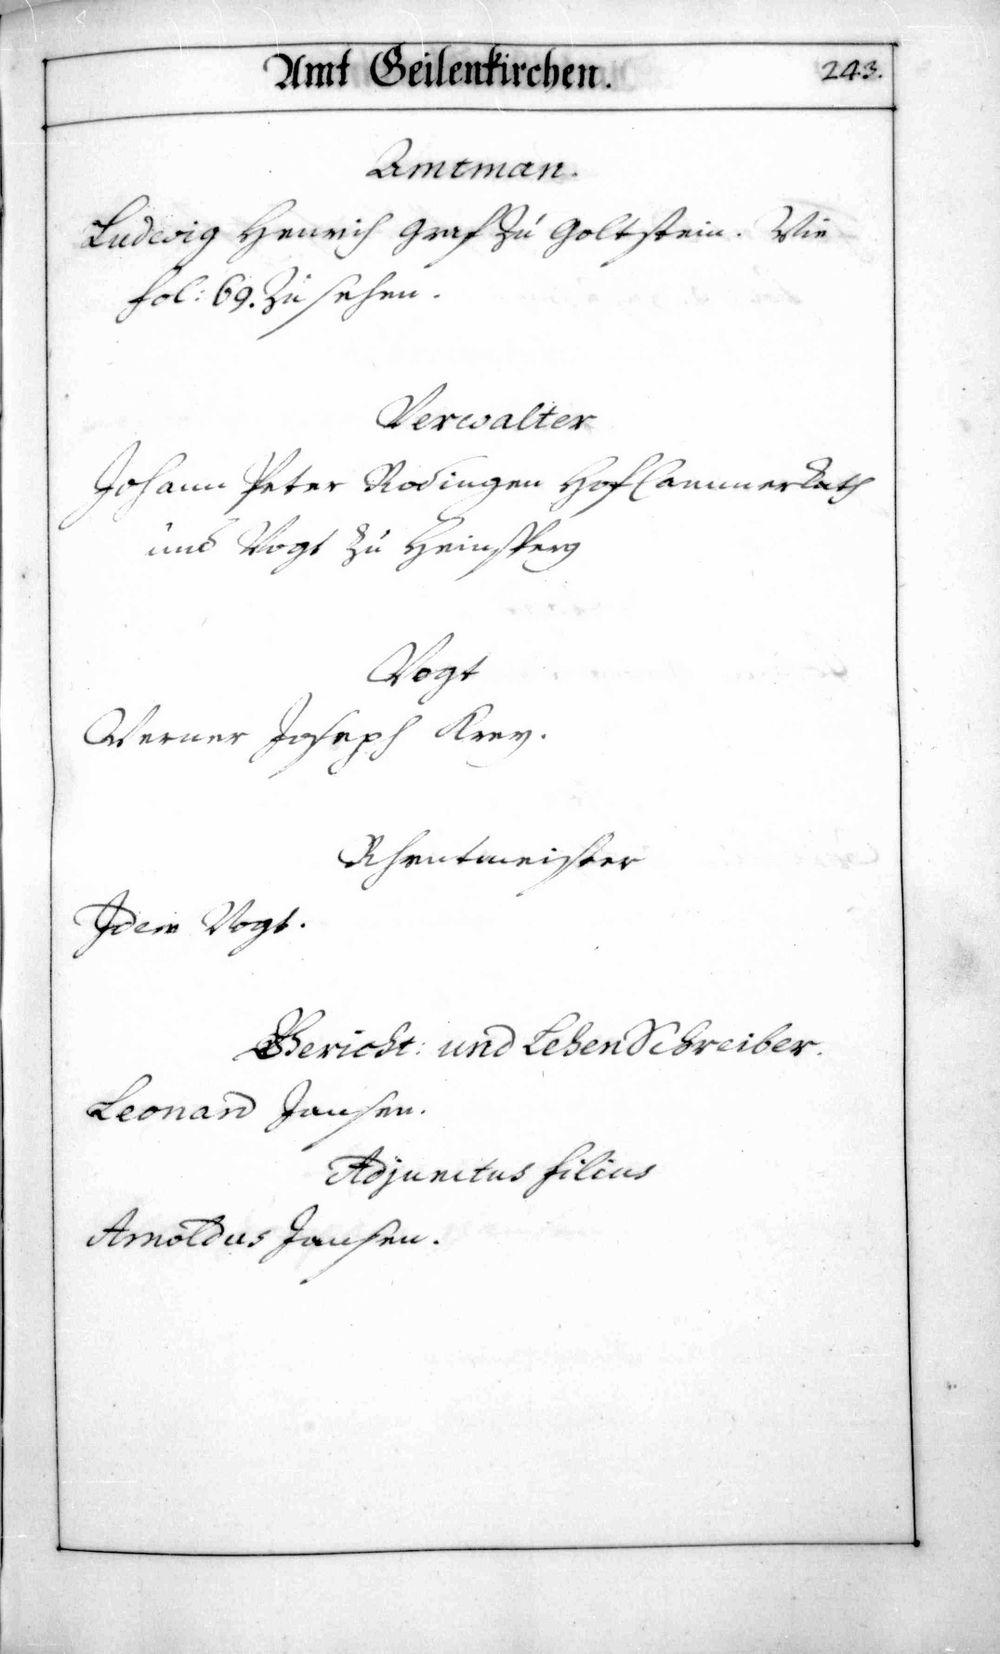 Amt Geilenkirchen.
243.
Amtman.
Ludewig Henrich Graf zu Goltstein. Wie
fol: 69. zu sehen.
Verwalter
Johann Peter Rodingen HofCammerRath
und Vogt zu Heinsperg
Vogt
Werner Joseph Krey.
Rhentmeister
Idem Vogt.
Gericht: und LehenSchreiber.
Leonard Jansen.
Adjunctus filius
Arnoldus Jansen.